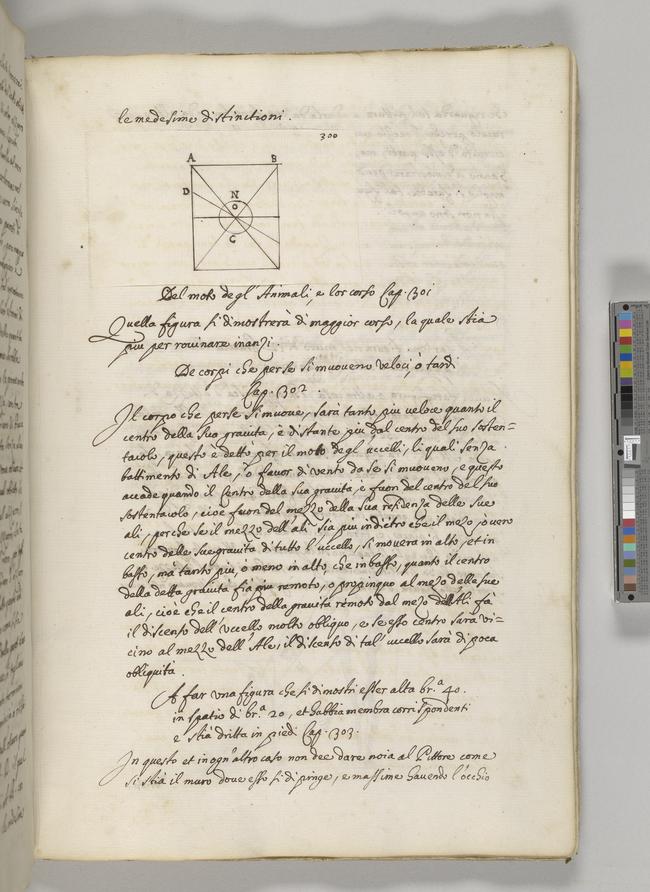 le medesime distinctioni.
300
A B
D
N
O
C
Del moto degl'Animali, e lor corso Cap. 301
Quella figura si dimostrerà di maggior corso, la quale stia
piu per rouinare inanzi.
De corpi che per se si muoueno veloci, ò tardi
Cap. 302.
Il corpo che per se si muoue, sarà tanto piu veloce quanto il
centro della sua grauita, è distante piu dal centro del suo sosten=
tacolo, questo è detto per il moto degl'uccelli, li quali senza
battimento di Ale, ò fauor di vento da se si muoueno, e questo
accade quando il Centro della sua grauità, è fuori del centro del suo
sostentacolo, cioè fuori del mezzo della sua residenza delle sue
ali, perche se il mezzo dell'ali sia piu indietro che il mezo, ò uero
centro delle sue grauita di tutto l'uccello, si mouerà in alto, et in
basso, mà tanto piu, ò meno in alto che in basso, quanto il centro
della detta grauità sia piu remoto, ò propinquo al mezo delle sue
ali, cioè che il centro della grauità remoto dal mezo dell'Ali fà
il discenso dell'Vccello molto obliquo, e se esso centro sarà vi=
cino al mezzo dell'Ale, il discenso di tal'uccello sarà di poca
obliquità.
A far vna figura che si dimostri esser alta br.ª 40.
in spatio di br.ª 20, et habbia membra corrispondenti
e stia dritta in piedi Cap. 303.
In questo et in ogn'altro caso non dee dare noia al Pittore come
si stia il muro doue esso si dipinge, e massime hauendo l'occhio